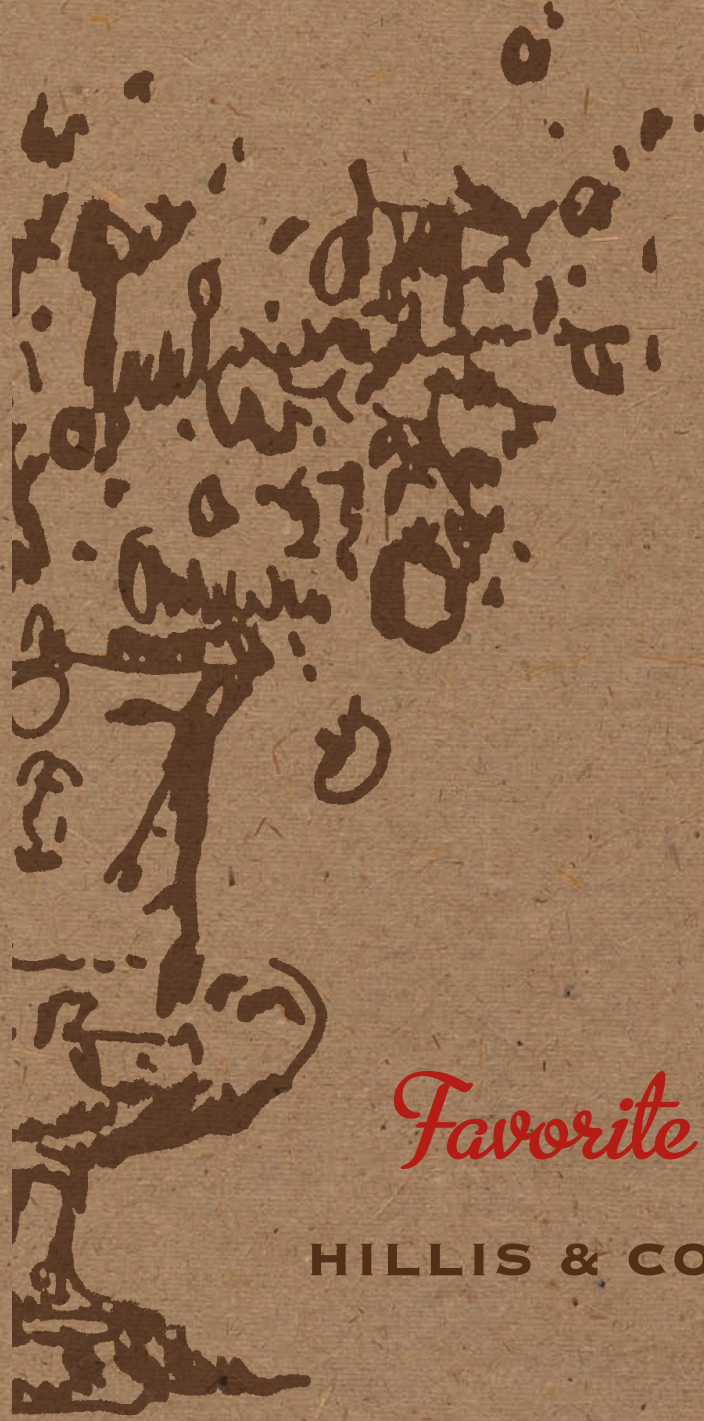 Favorite
HILLIS & CO